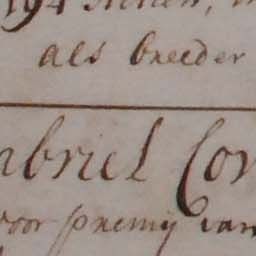 194
als breeder
abriel Cor
voor premij van